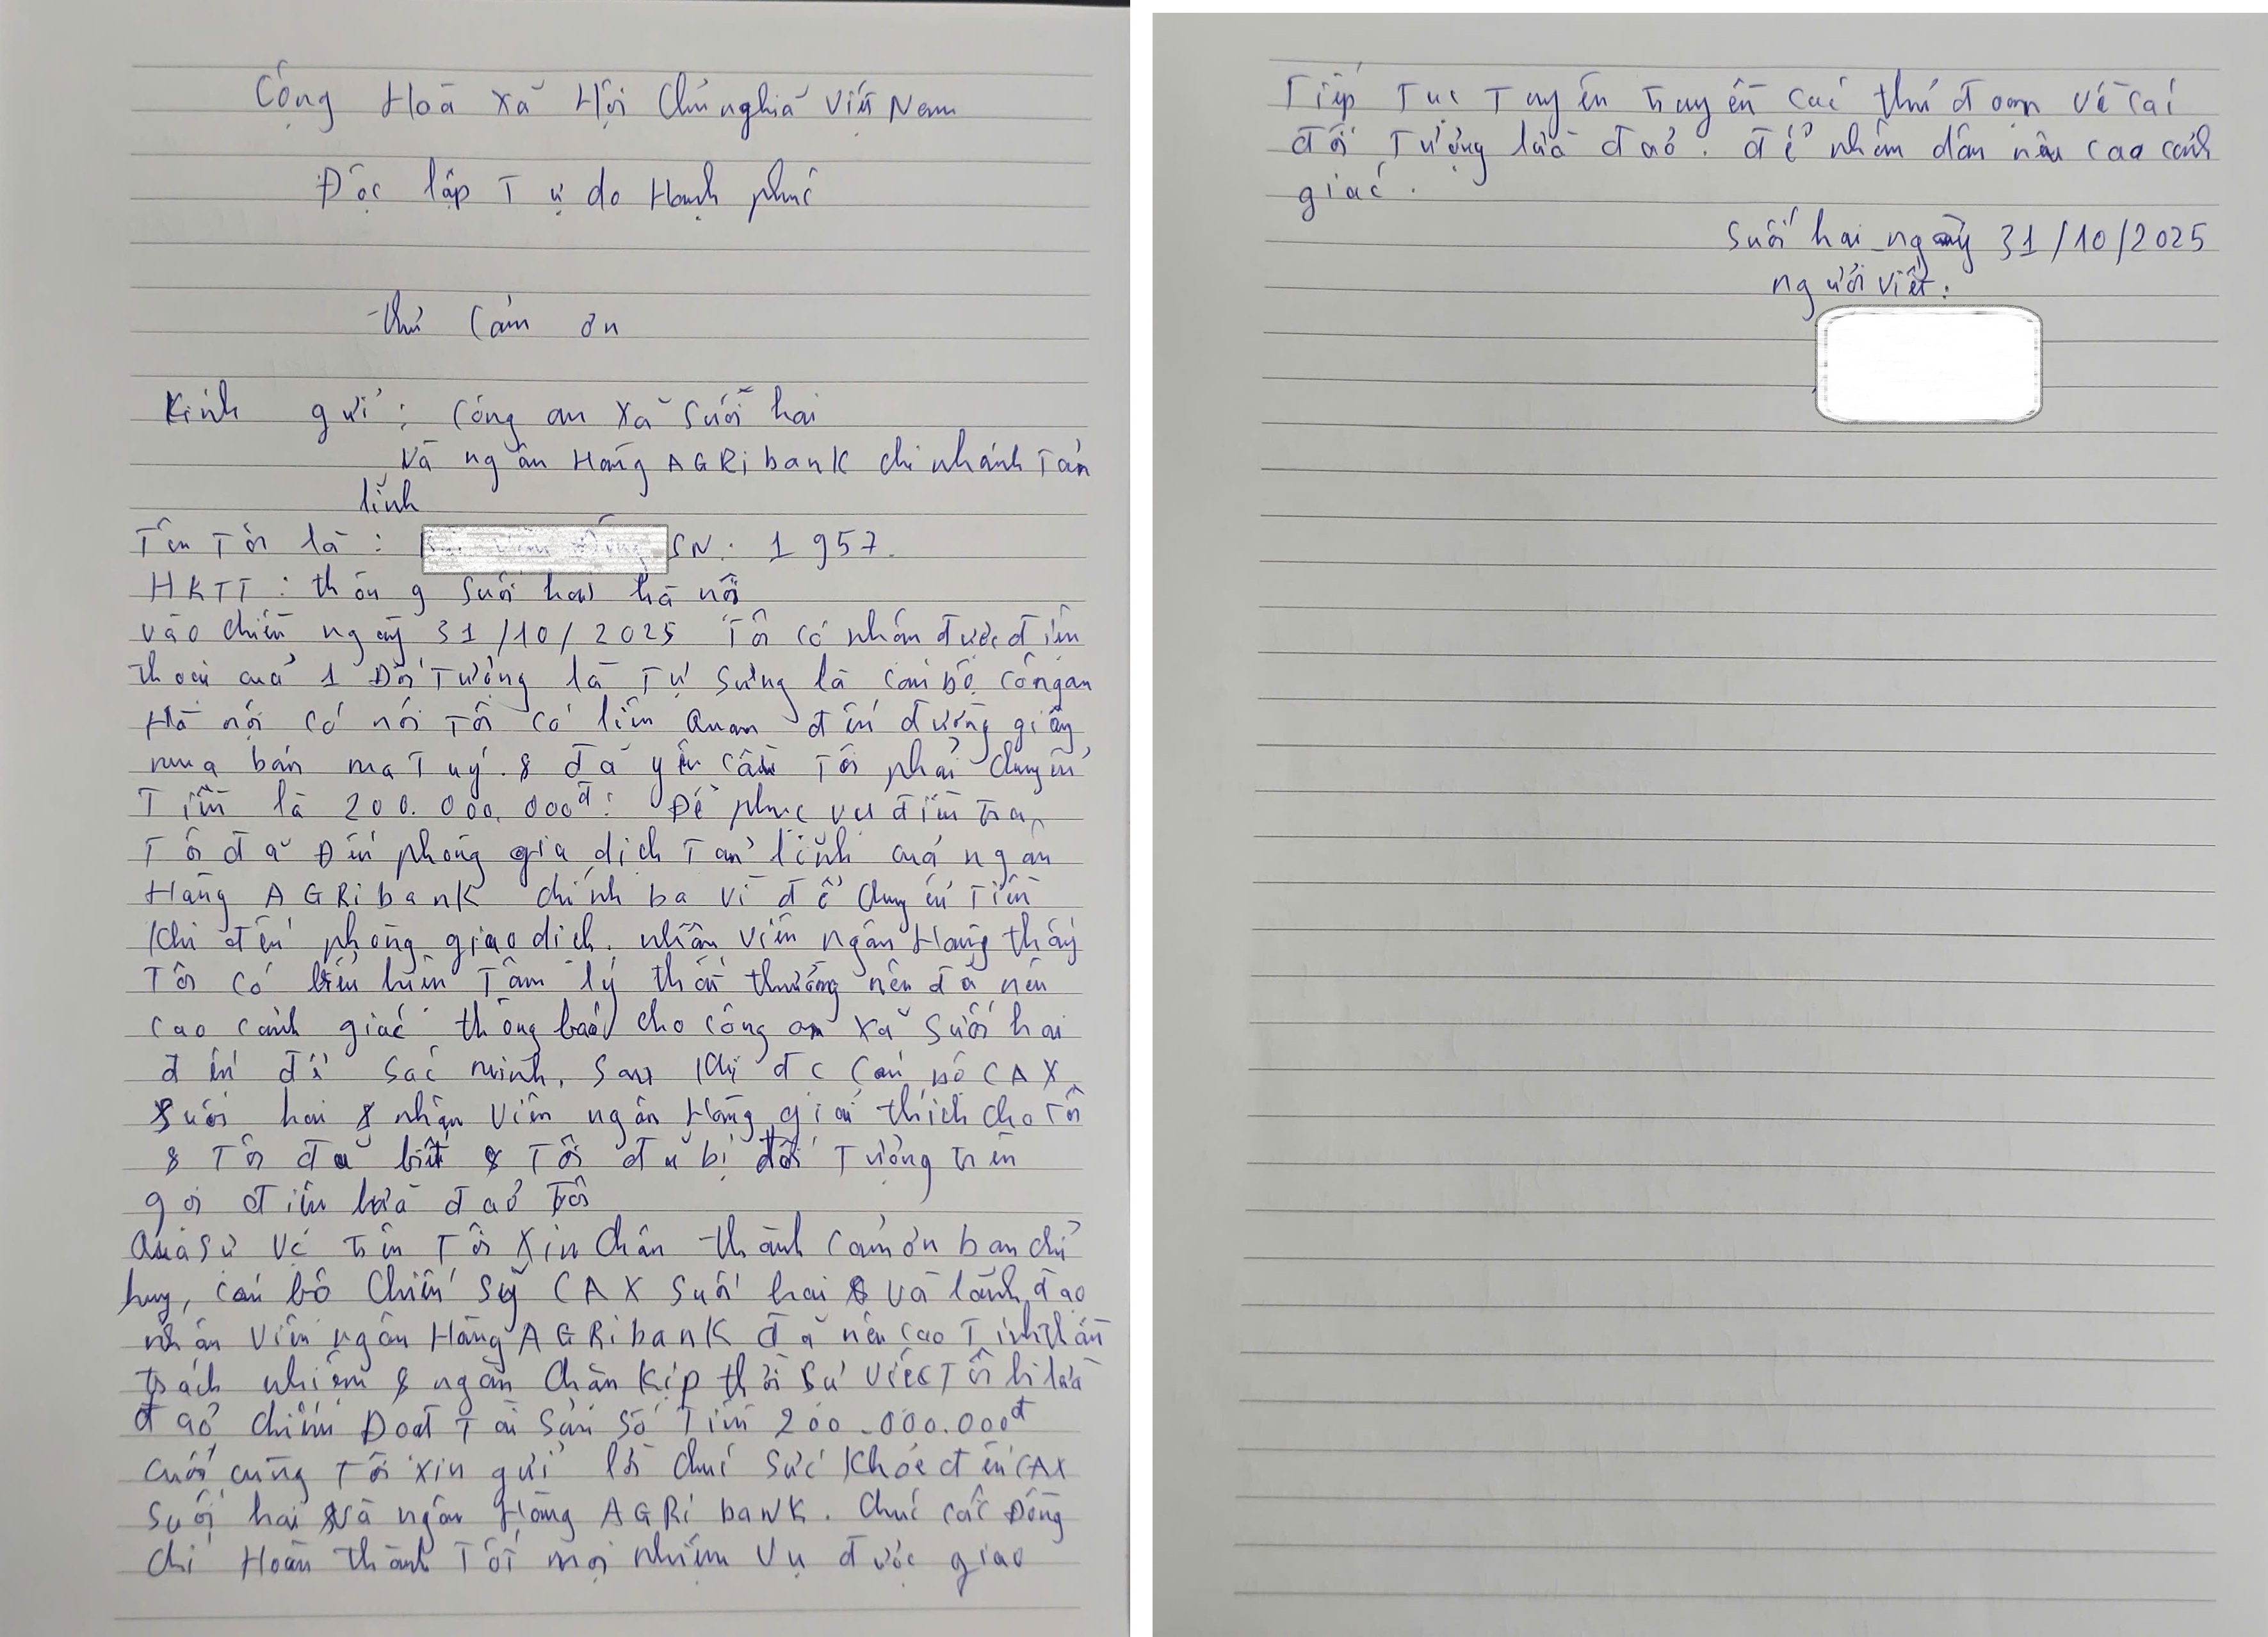 Cộng Hoà Xã Hội Chủ nghĩa Việt Nam
Độc lập Tự do Hạnh phúc
Thư Cảm ơn
Kính gửi: Công an xã Suối hai
Và ngân Hàng AGRibank chi nhánh Tản
lĩnh
Tên Tôi là: SN: 1957.
HKTT: thôn 9 Suối hai hà nội
vào chiều ngày 31/10/2025 Tôi có nhận được điện
thoại của 1 Đối Tượng là Tự Sưng là cán bộ công an
Hà nội có nói Tôi có liên Quan đến đường giây
mua bán ma Tuý. & đã yêu cầu Tôi phải chuyển
Tiền là 200.000.000đ: Để phục vụ điều tra,
Tôi đã Đến phòng gia dịch Tản lĩnh của ngân
Hàng AGRibank chính ba vì để chuyển Tiền
Khi đến phòng giao dịch. nhân viên ngân Hàng thấy
Tôi có biểu hiện Tâm lý thất thường nên đã nên
cao cảnh giác thông báo cho công an xã Suối hai
đến để sác minh, Sau Khi đc cán bộ CAX
Suối hai & nhân viên ngân Hàng giải thích cho Tôi
& Tôi đã biết & Tôi đã bị đối Tượng trên
gọi điện lừa đảo Tôi
Qua sự vc trên Tôi Xin Chân thành cảm ơn ban chỉ
huy, cán bộ Chiến Sỹ CAX Suối hai & và lãnh đạo
nhân viên ngân Hàng AGRibank đã nên cao Tinh thần
trách nhiệm & ngăn Chặn Kịp thời Sự việc Tôi bị lừa
đảo chiếm Đoạt Tài Sản Số Tiền 200.000.000đ
cuối cùng Tôi xin gửi lời chúc Sức Khỏe đến CAX
Suối hai Và ngân Hàng AGRibank. Chúc các Đồng
chí Hoàn thành Tốt mọi nhiệm vụ được giao
Tiếp Tục Tuyên truyền các thủ đoạn về các
đối Tượng lừa đảo. để nhân dân nêu cao cảnh
giác.
Suối hai ngày 31/10/2025
người viết: